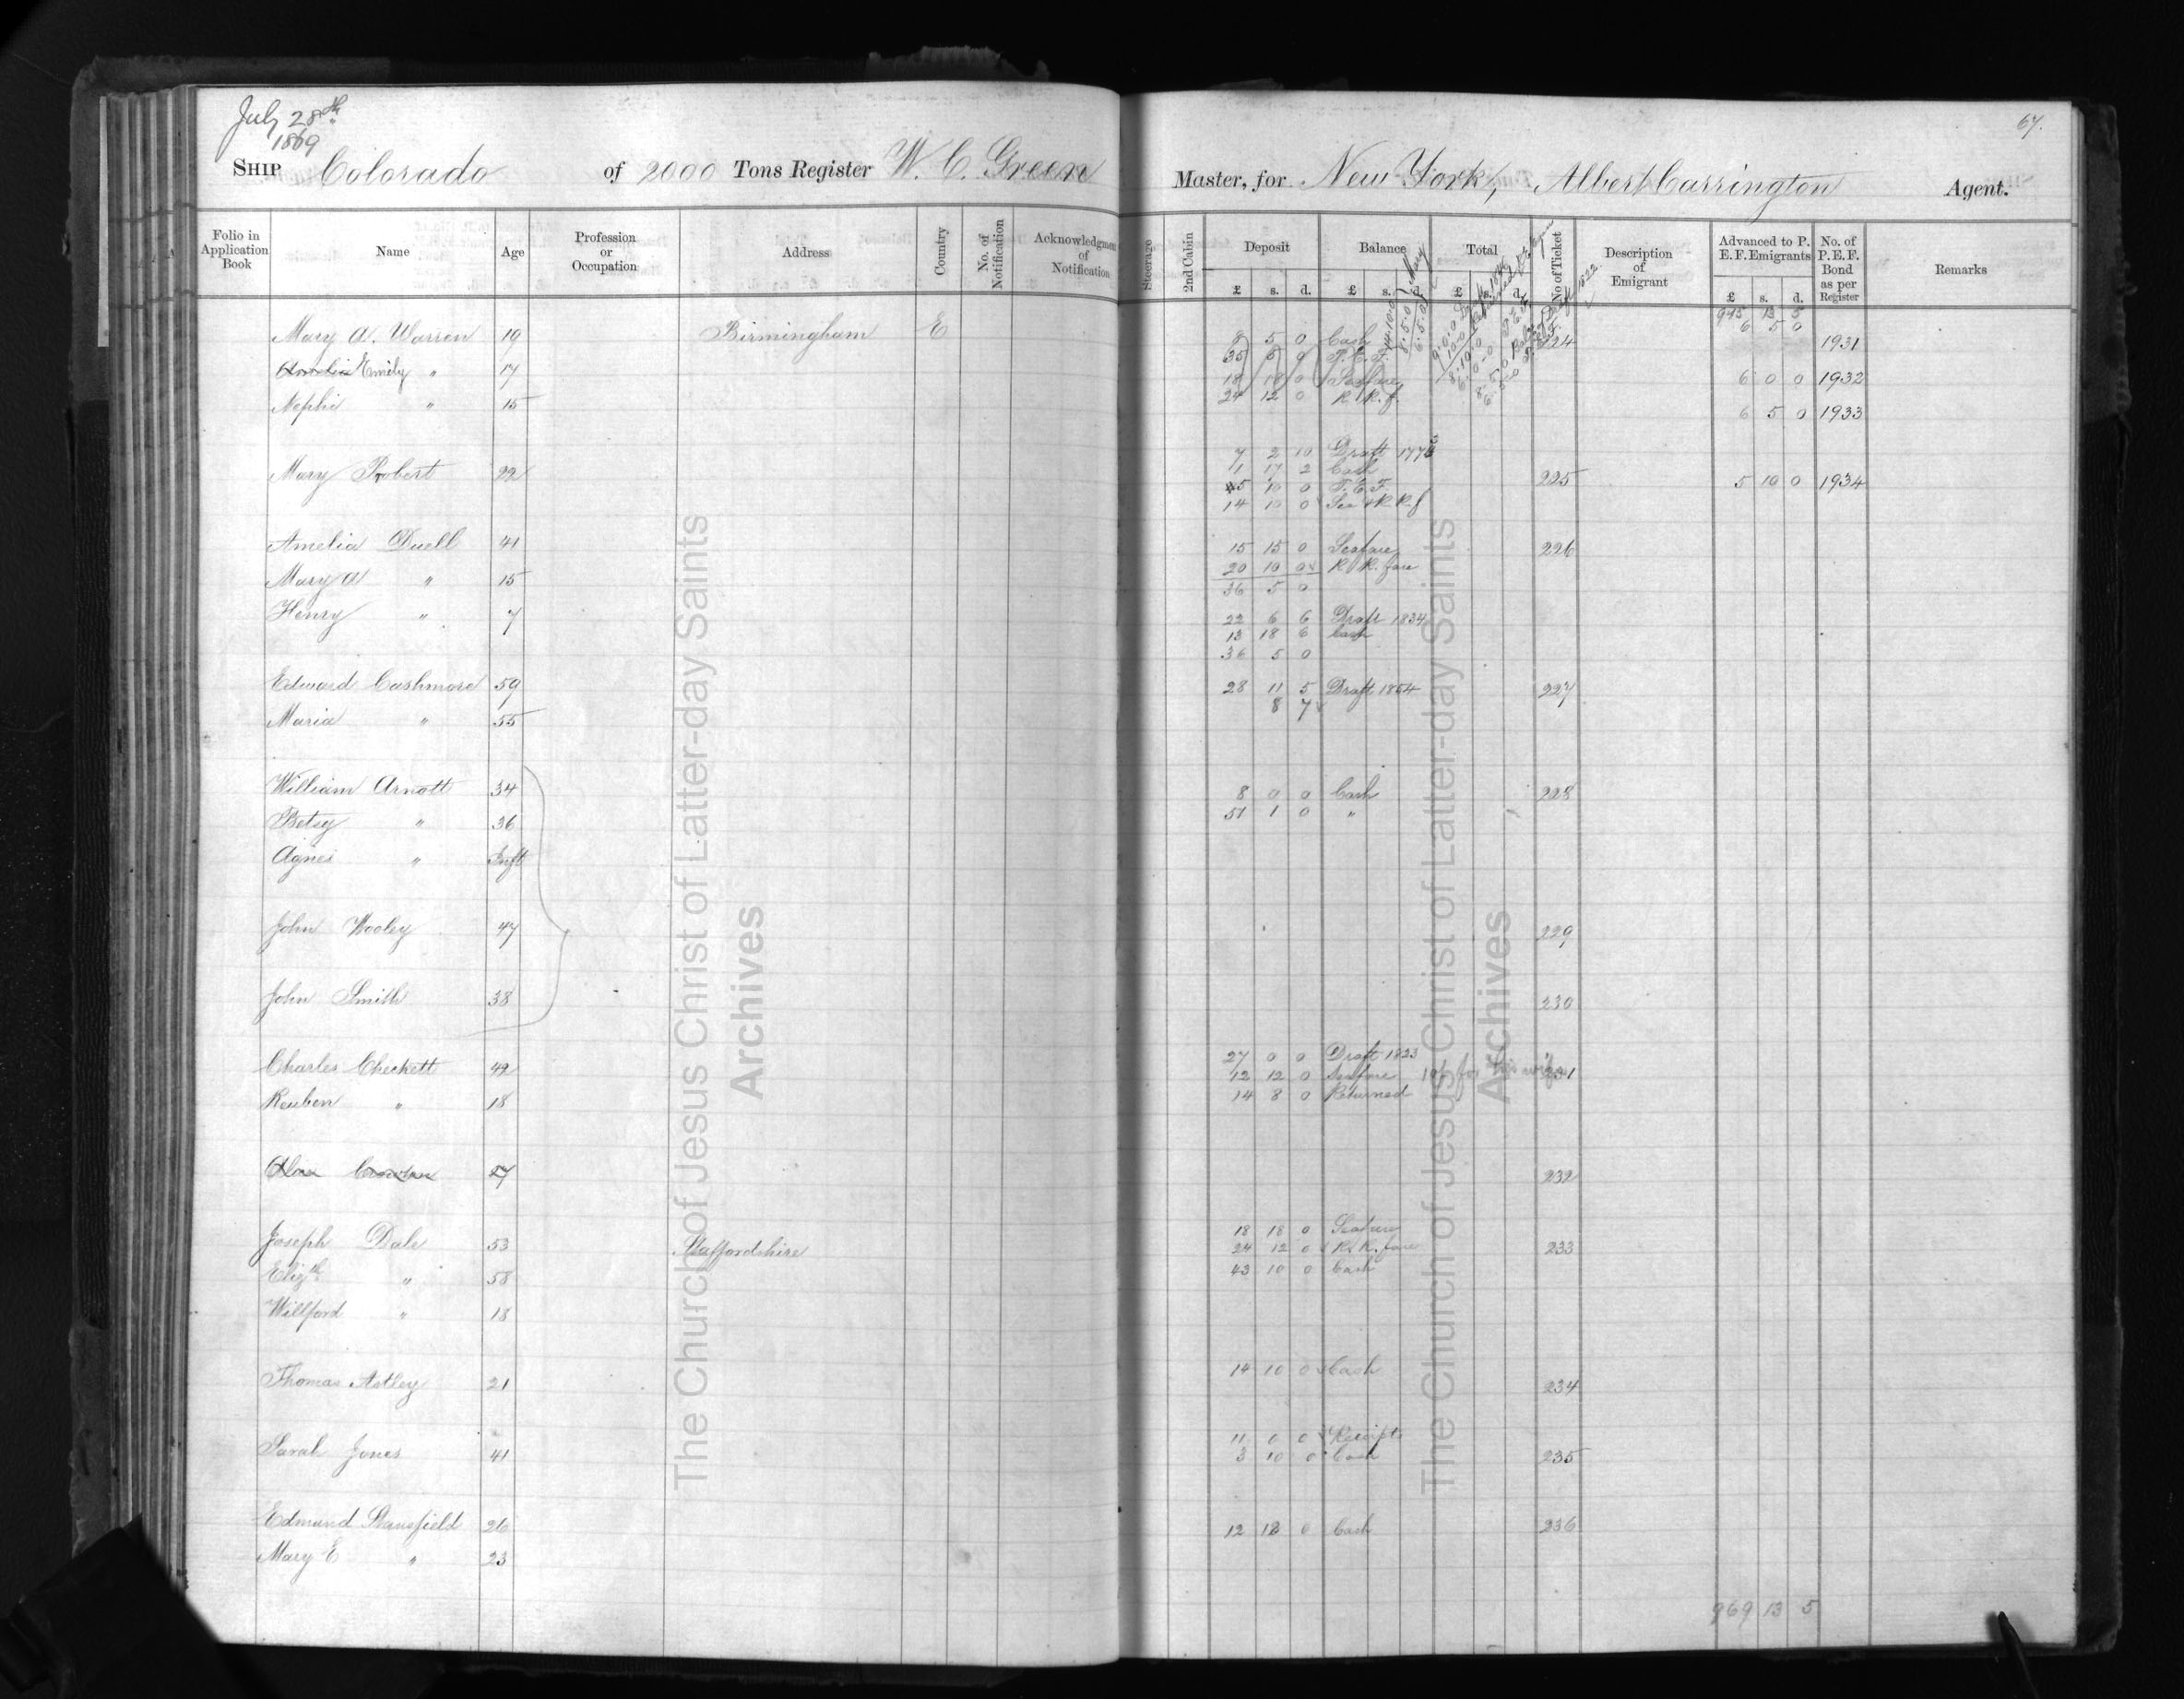 July 28th
1869
67.
SHIP Colorado of 2000 Tons Register W. C. Green Master, for New York, Albert Carrington Agent.
Folio in Application Book Name Age Profession or Occupation Address Country No. of Notification Acknowledgment of Notification Steerage 2nd Cabin Deposit Balance Total No. of Ticket Description of Emigrant Advanced to P. E. F. Emigrants No. of P. E. F. Bond as per Register Remarks
£ s. d. £ s. d. £ s. d. £ s. d.
945 13 5
Mary A. Warren 19 Birmingham E 8 5 0 Cash 224 6 5 0 1931
35 5 0 P. E. F.
Emily " 17 18 18 0 Seafare 6 0 0 1932
Nephi " 15 24 12 0 R. R. f. 6 5 0 1933
7 2 10 Draft
Mary Robert 22 1 17 2 Cash 225 5 10 0 1934
5 10 0 P. E. F.
14 10 0 Sea & R R f
Amelia Duell 41 15 15 0 Seafare 226
Mary A " 15 20 10 0 R R. fare
36 5 0
Henry " 7 22 6 6 Draft 1834
13 18 6 Cash
36 5 0
Edward Cashmore 59 28 11 5 Draft 1854 227
8 7
Maria " 55
William Arnott 34 8 0 0 Cash 228
Betsy " 36 51 1 0 "
Agnes " Inft
John Wooley 47 229
John Smith 38 230
27 0 0 Draft 1823
Charles Checkett 49 12 12 0 Seafare for his wife 231
Reuben " 18 14 8 0 Returned
27 232
18 18 0 Seafare
Joseph Dale 53 Staffordshire 24 12 0 R. R. fare 233
Elizth " 58 43 10 0 Cash
Willford " 18
14 10 0 Cash
Thomas Astley 21 234
11 0 0 Receipt
Sarah Jones 41 3 10 0 Cash 235
Edmund Stansfield 26 12 12 0 Cash 236
Mary E " 23
969 13 5
The Church of Jesus Christ of Latter-day Saints
Archives
The Church of Jesus Christ of Latter-day Saints
Archives